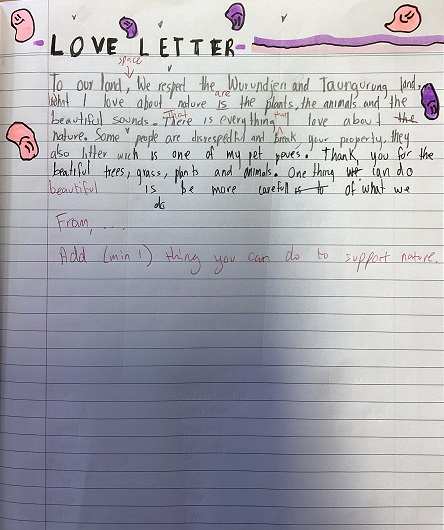 LOVE LETTER
space
To our land, We respect the Wurundjeri and Taungurung land,
are
What I love about nature is the plants, the animals and the
That that
beautiful sounds. There is everything I love about the
nature. Some people are disrespectful and break your property, they
also litter wich is one of my pet peves. Thank, you for the
beatiful trees, grass, plants and animals. One thing we can do
beautiful is be more careful is to of what we
do
From, ....
Add (min 1) thing you can do to support nature.